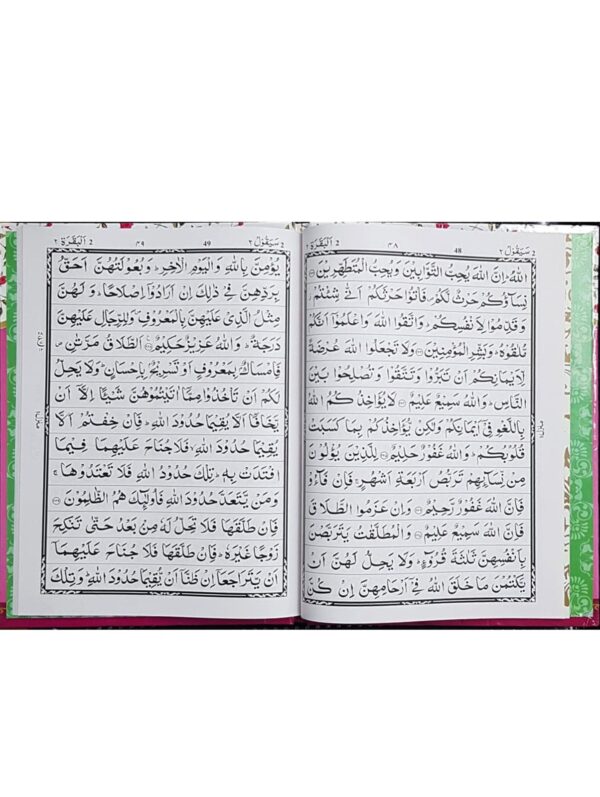 2 سَيَقُولُ ٢
48
٤٨
2 اَلْبَقَرَة ٢
اللّٰهُ ؕ اِنَّ اللّٰهَ يُحِبُّ التَّوَّابِيْنَ وَيُحِبُّ الْمُتَطَهِّرِيْنَ ۝
نِسَآؤُكُمْ حَرْثٌ لَّكُمْ ۪ فَاْتُوْا حَرْثَكُمْ اَنّٰى شِئْتُمْ ؗ
وَ قَدِّمُوْا لِاَنْفُسِكُمْ ؕ وَاتَّقُوا اللّٰهَ وَاعْلَمُوْۤا اَنَّكُمْ
مُّلٰقُوْهُ ؕ وَبَشِّرِ الْمُؤْمِنِيْنَ ۝ وَلَا تَجْعَلُوا اللّٰهَ عُرْضَةً
لِّاَيْمَانِكُمْ اَنْ تَبَرُّوْا وَتَتَّقُوْا وَتُصْلِحُوْا بَيْنَ
النَّاسِ ؕ وَاللّٰهُ سَمِيْعٌ عَلِيْمٌ ۝ لَا يُؤَاخِذُكُمُ اللّٰهُ
بِاللَّغْوِ فِيْۤ اَيْمَانِكُمْ وَلٰكِنْ يُّؤَاخِذُكُمْ بِمَا كَسَبَتْ
قُلُوْبُكُمْ ؕ وَاللّٰهُ غَفُوْرٌ حَلِيْمٌ ۝ لِلَّذِيْنَ يُؤْلُوْنَ
مِنْ نِّسَآئِهِمْ تَرَبُّصُ اَرْبَعَةِ اَشْهُرٍ ۚ فَاِنْ فَآءُوْ
فَاِنَّ اللّٰهَ غَفُوْرٌ رَّحِيْمٌ ۝ وَاِنْ عَزَمُوا الطَّلَاقَ
فَاِنَّ اللّٰهَ سَمِيْعٌ عَلِيْمٌ ۝ وَالْمُطَلَّقٰتُ يَتَرَبَّصْنَ
بِاَنْفُسِهِنَّ ثَلٰثَةَ قُرُوْٓءٍ ؕ وَلَا يَحِلُّ لَهُنَّ اَنْ
يَّكْتُمْنَ مَا خَلَقَ اللّٰهُ فِيْۤ اَرْحَامِهِنَّ اِنْ كُنَّ
2 سَيَقُولُ ٢
49
٤٩
2 اَلْبَقَرَة ٢
يُؤْمِنَّ بِاللّٰهِ وَالْيَوْمِ الْاٰخِرِ ؕ وَبُعُوْلَتُهُنَّ اَحَقُّ
بِرَدِّهِنَّ فِيْ ذٰلِكَ اِنْ اَرَادُوْۤا اِصْلَاحًا ؕ وَلَهُنَّ
مِثْلُ الَّذِيْ عَلَيْهِنَّ بِالْمَعْرُوْفِ ۪ وَلِلرِّجَالِ عَلَيْهِنَّ
دَرَجَةٌ ؕ وَاللّٰهُ عَزِيْزٌ حَكِيْمٌ ۝ اَلطَّلَاقُ مَرَّتٰنِ ۪
فَاِمْسَاكٌۢ بِمَعْرُوْفٍ اَوْ تَسْرِيْحٌۢ بِاِحْسَانٍ ؕ وَلَا يَحِلُّ
لَكُمْ اَنْ تَاْخُذُوْا مِمَّاۤ اٰتَيْتُمُوْهُنَّ شَيْئًا اِلَّاۤ اَنْ
يَّخَافَاۤ اَلَّا يُقِيْمَا حُدُوْدَ اللّٰهِ ؕ فَاِنْ خِفْتُمْ اَلَّا
يُقِيْمَا حُدُوْدَ اللّٰهِ ۙ فَلَا جُنَاحَ عَلَيْهِمَا فِيْمَا
افْتَدَتْ بِهٖ ؕ تِلْكَ حُدُوْدُ اللّٰهِ فَلَا تَعْتَدُوْهَا ۚ
وَمَنْ يَّتَعَدَّ حُدُوْدَ اللّٰهِ فَاُولٰٓئِكَ هُمُ الظّٰلِمُوْنَ ۝
فَاِنْ طَلَّقَهَا فَلَا تَحِلُّ لَهٗ مِنْۢ بَعْدُ حَتّٰى تَنْكِحَ
زَوْجًا غَيْرَهٗ ؕ فَاِنْ طَلَّقَهَا فَلَا جُنَاحَ عَلَيْهِمَاۤ
اَنْ يَّتَرَاجَعَاۤ اِنْ ظَنَّاۤ اَنْ يُّقِيْمَا حُدُوْدَ اللّٰهِ ؕ وَتِلْكَ